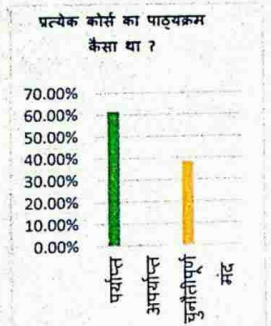 प्रत्येक कोर्स का पाठ्यक्रम
कैसा था ?
70.00%
60.00%
50.00%
40.00%
30.00%
20.00%
10.00%
0.00%
पर्याप्त
अपर्याप्त
चुनौतीपूर्ण
मंद